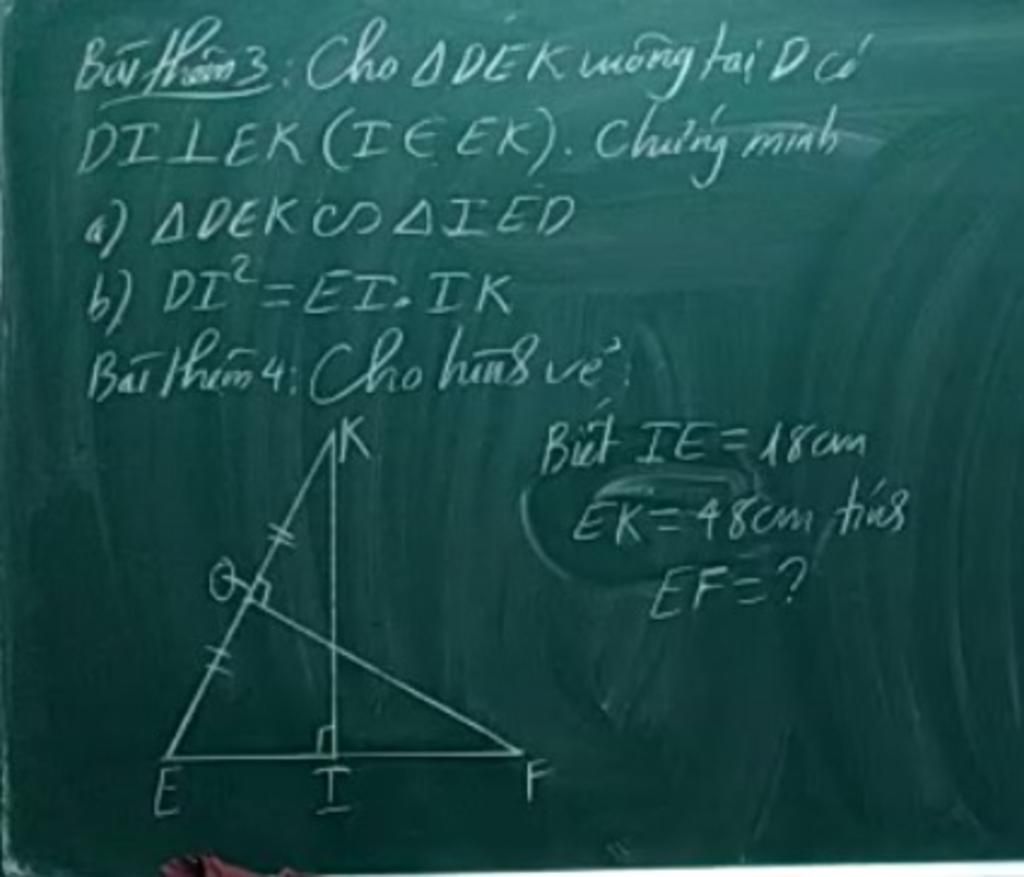 Bài thêm 3: Cho ΔDEK vuông tại D có
DI⊥EK (I∈EK). Chứng minh
a) ΔDEK ∽ ΔIED
b) DI² = EI. IK
Bài thêm 4: Cho hình vẽ:
K
Biết IE = 18cm
EK = 48cm, tính
EF = ?
Q
E
I
F